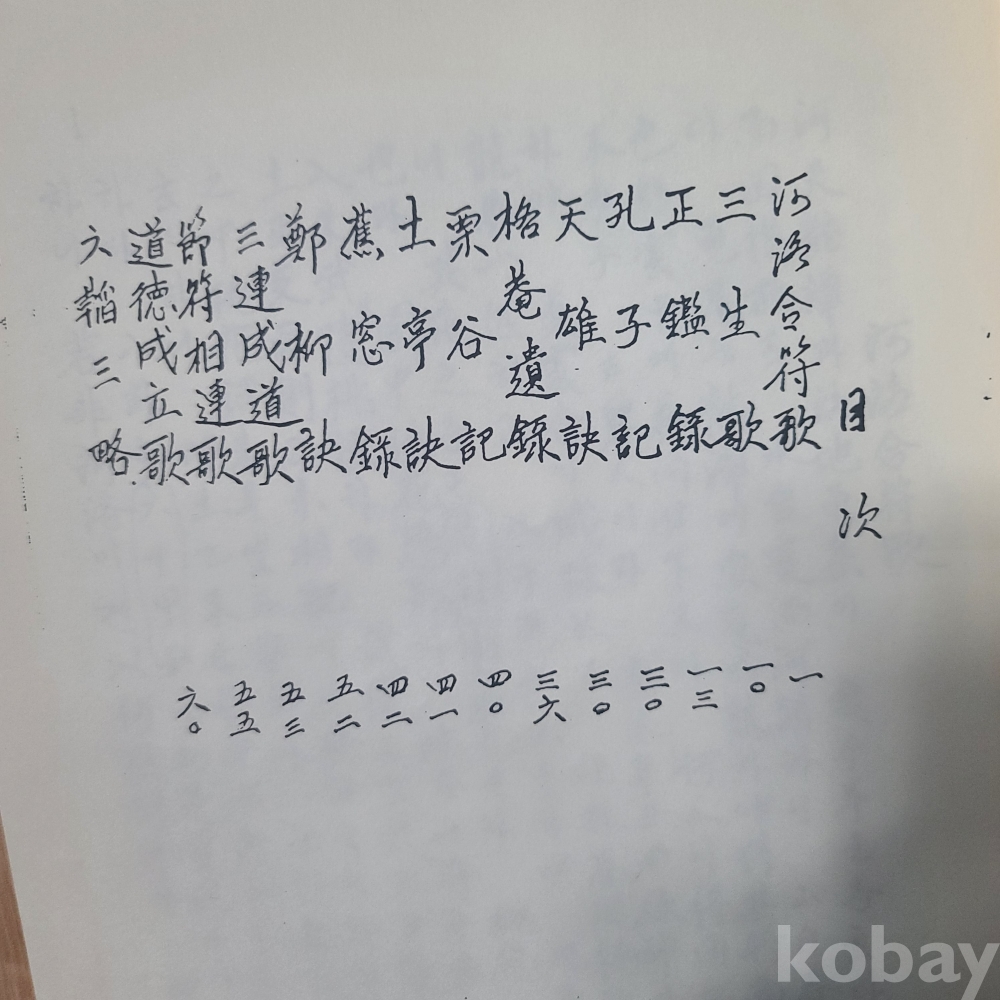 目次
河洛合符歌 一
三生歌 一〇
正鑑錄 一三
孔子記 三〇
天雄訣 三〇
格菴遺錄 三六
栗谷記 四〇
土亭訣 四一
蕉窓錄 四二
鄭柳訣 五二
三連成道歌 五三
節符相連歌 五五
道德成立歌 六〇
六韜三略
kobay